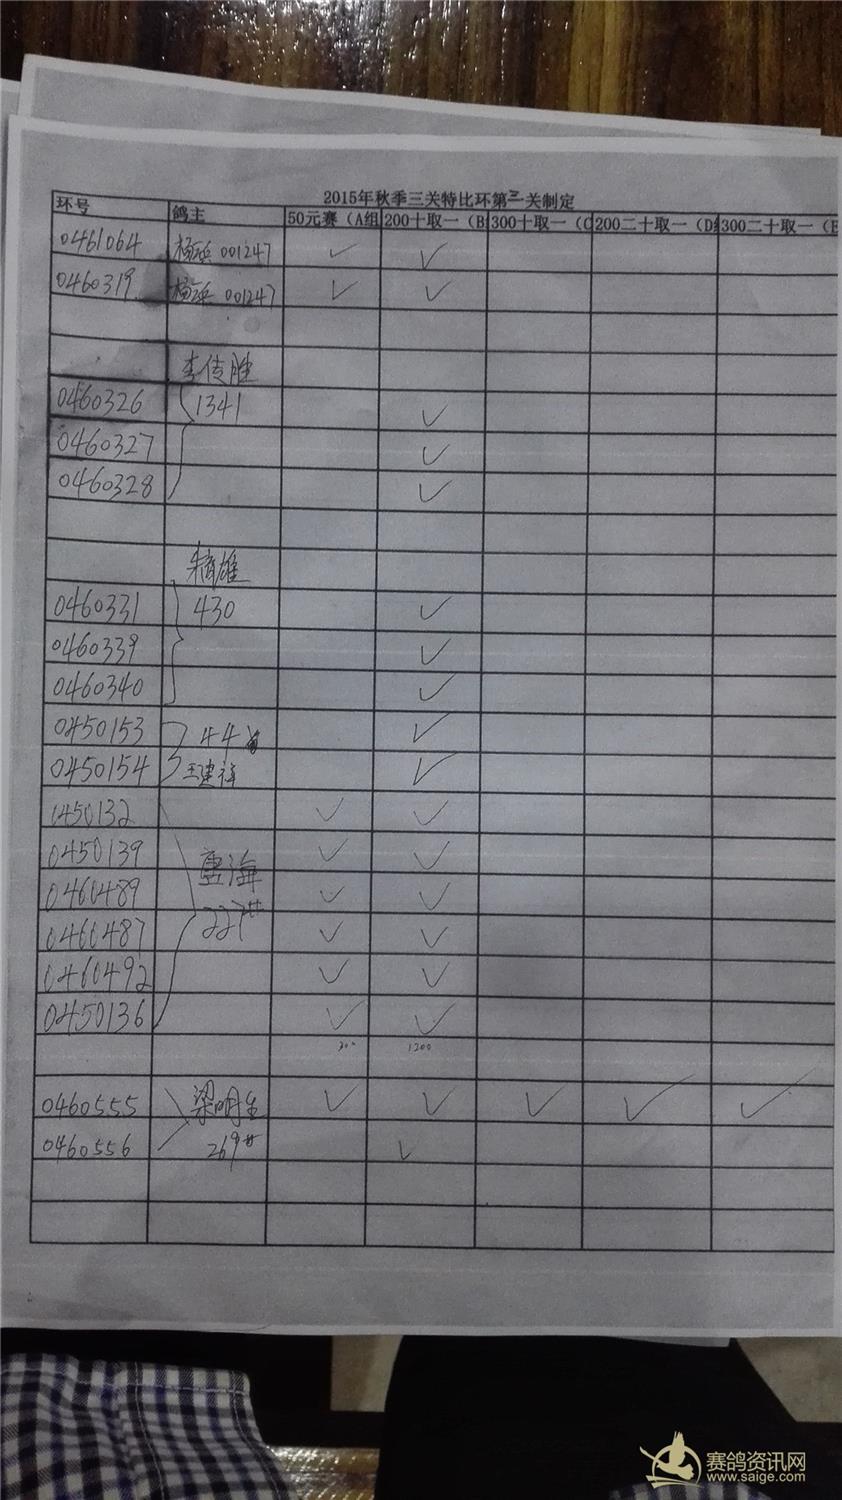 2015年秋季三关特比环第三关制定
环号 鸽主 50元赛（A组 200十取一（B组 300十取一（C 200二十取一（D组 300二十取一（E
0461064 杨兵 001247 ✓ ✓
0460319 杨兵 001247 ✓ ✓
李传胜
0460326 1341 ✓
0460327 ✓
0460328 ✓
0460331 430 ✓
0460339 ✓
0460340 ✓
0450153 44 ✓
0450154 王建祥 ✓
0450132 ✓ ✓
0450139 ✓ ✓
海
0460489 ✓ ✓
0460487 227# ✓ ✓
0460492 ✓ ✓
0450136 ✓ ✓
300 1200
0460555 梁明生 ✓ ✓ ✓ ✓ ✓
0460556 269# ✓
赛鸽资讯网
www.saige.com